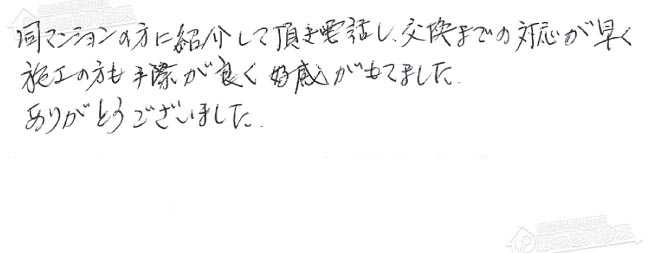 同マンションの方に紹介して頂き電話し、交換までの対応が早く
施工の方も手際が良く好感がもてました。
ありがとうございました。